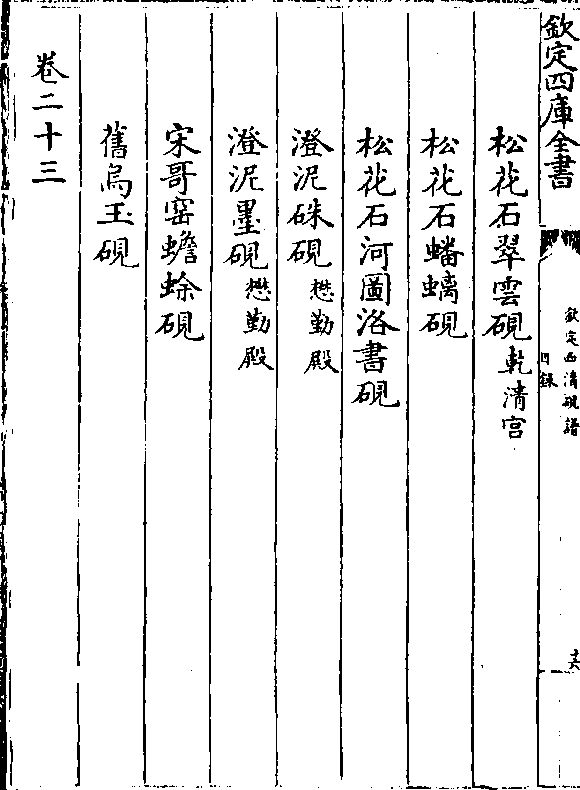 欽定四庫全書
欽定西清硯譜
目錄
十六
松花石翠雲硯乾清宮
松花石蟠螭硯
松花石河圖洛書硯
澄泥硃硯懋勤殿
澄泥墨硯懋勤殿
宋哥窑蟾蜍硯
舊烏玉硯
卷二十三